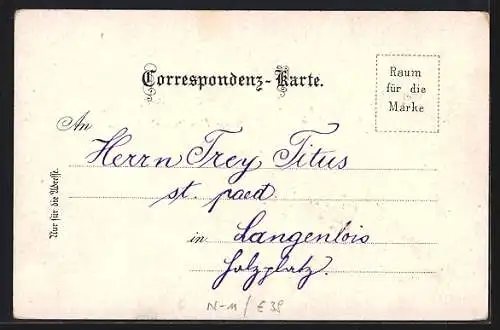 Correspondenz-Karte.
Raum
für die
Marke
An
Herrn Frey Titus
st. paed.
in Langenlois
Holzplatz.
Nur für die Adresse.
N-11/E38